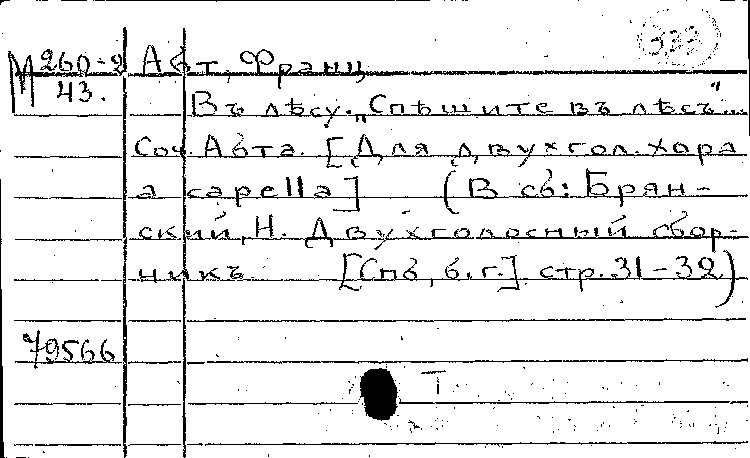 М 260-2 Абт, Франц
43.
Въ лѣсу. „Спѣшите въ лѣсъ"...
Соч. Абта. [Для двухгол. хора
a capella] (В сб: Брян-
ский, Н. Двухголосный сбор-
никъ. [Спб, б.г.]. стр. 31-32)
79566
Т